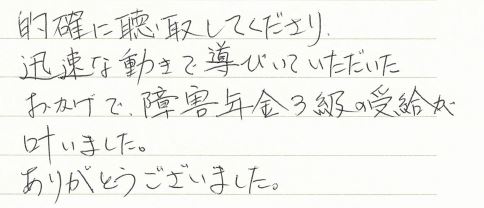 的確に聴取してくださり、
迅速な動きで導びいていただいた
おかげで、障害年金3級の受給が
叶いました。
ありがとうございました。